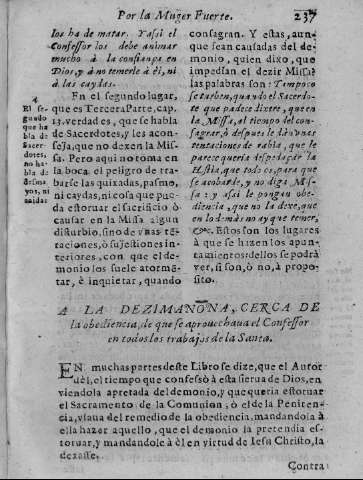 Por la Muger Fuerte. 237
los ha de matar. Y assi el
Confessor los debe animar
mucho à la confiança en
Dios, y à no temerle à èl, ni
à las caydas.
En el segundo lugar,
que es Tercera Parte, cap.
13. verdad es, que se habla
de Sacerdotes, y les acon-
seja, que no dexen la Mis-
sa. Pero aqui no toma en
la boca el peligro de tra-
barse las quixadas, pasmo,
ni caydas, ni cosa que pue-
da estoruar el sacrificio ò
causar en la Missa algun
disturbio, sino de vnas tē-
taciones, ò sujestiones in-
teriores, con que el de-
monio los suele atormē-
tar, è inquietar, quando
4
El se-
gundo
que ha
bla de
Sacer-
dotes,
no ha-
bla de
pasmos, ni
caidas
consagran. Y estas, aun-
que sean causadas del de-
monio, quien dixo, que
impedian el dezir Missa?
las palabras son: Tampoco
se turben, quando el Sacerdo-
te que padece dixere, que en
la Missa, al tiempo del con-
sagrar, ò despues le dàn vnas
tentaciones de rabia, que le
parece queria despedaçar la
Hostia, que todo es, para que
se acobarde, y no diga Mis-
sa: y assi le pongan obe-
diencia, que no la dexe, que
en lo demàs no ay que temer,
&c. Estos son los lugares
à que se hizen los apun-
tamientos: dellos se podrà
ver, si son, ò no, à propo-
sito.
A LA DEZIMANONA, CERCA DE
la obediencia, de que se aprouechaua el Confessor
en todos los trabajos de la Santa.
EN muchas partes deste Libro se dize, que el Autor
del, el tiempo que confessò à esta sierua de Dios, en
viendola apretada del demonio, y que queria estoruar
el Sacramento de la Comunion, ò el de la Peniten-
cia, vsaua del remedio de la obediencia, mandandola à
ella hazer aquello, que el demonio la pretendia es-
toruar, y mandandole à èl en virtud de Iesu Christo, la
dexasse.
Contra